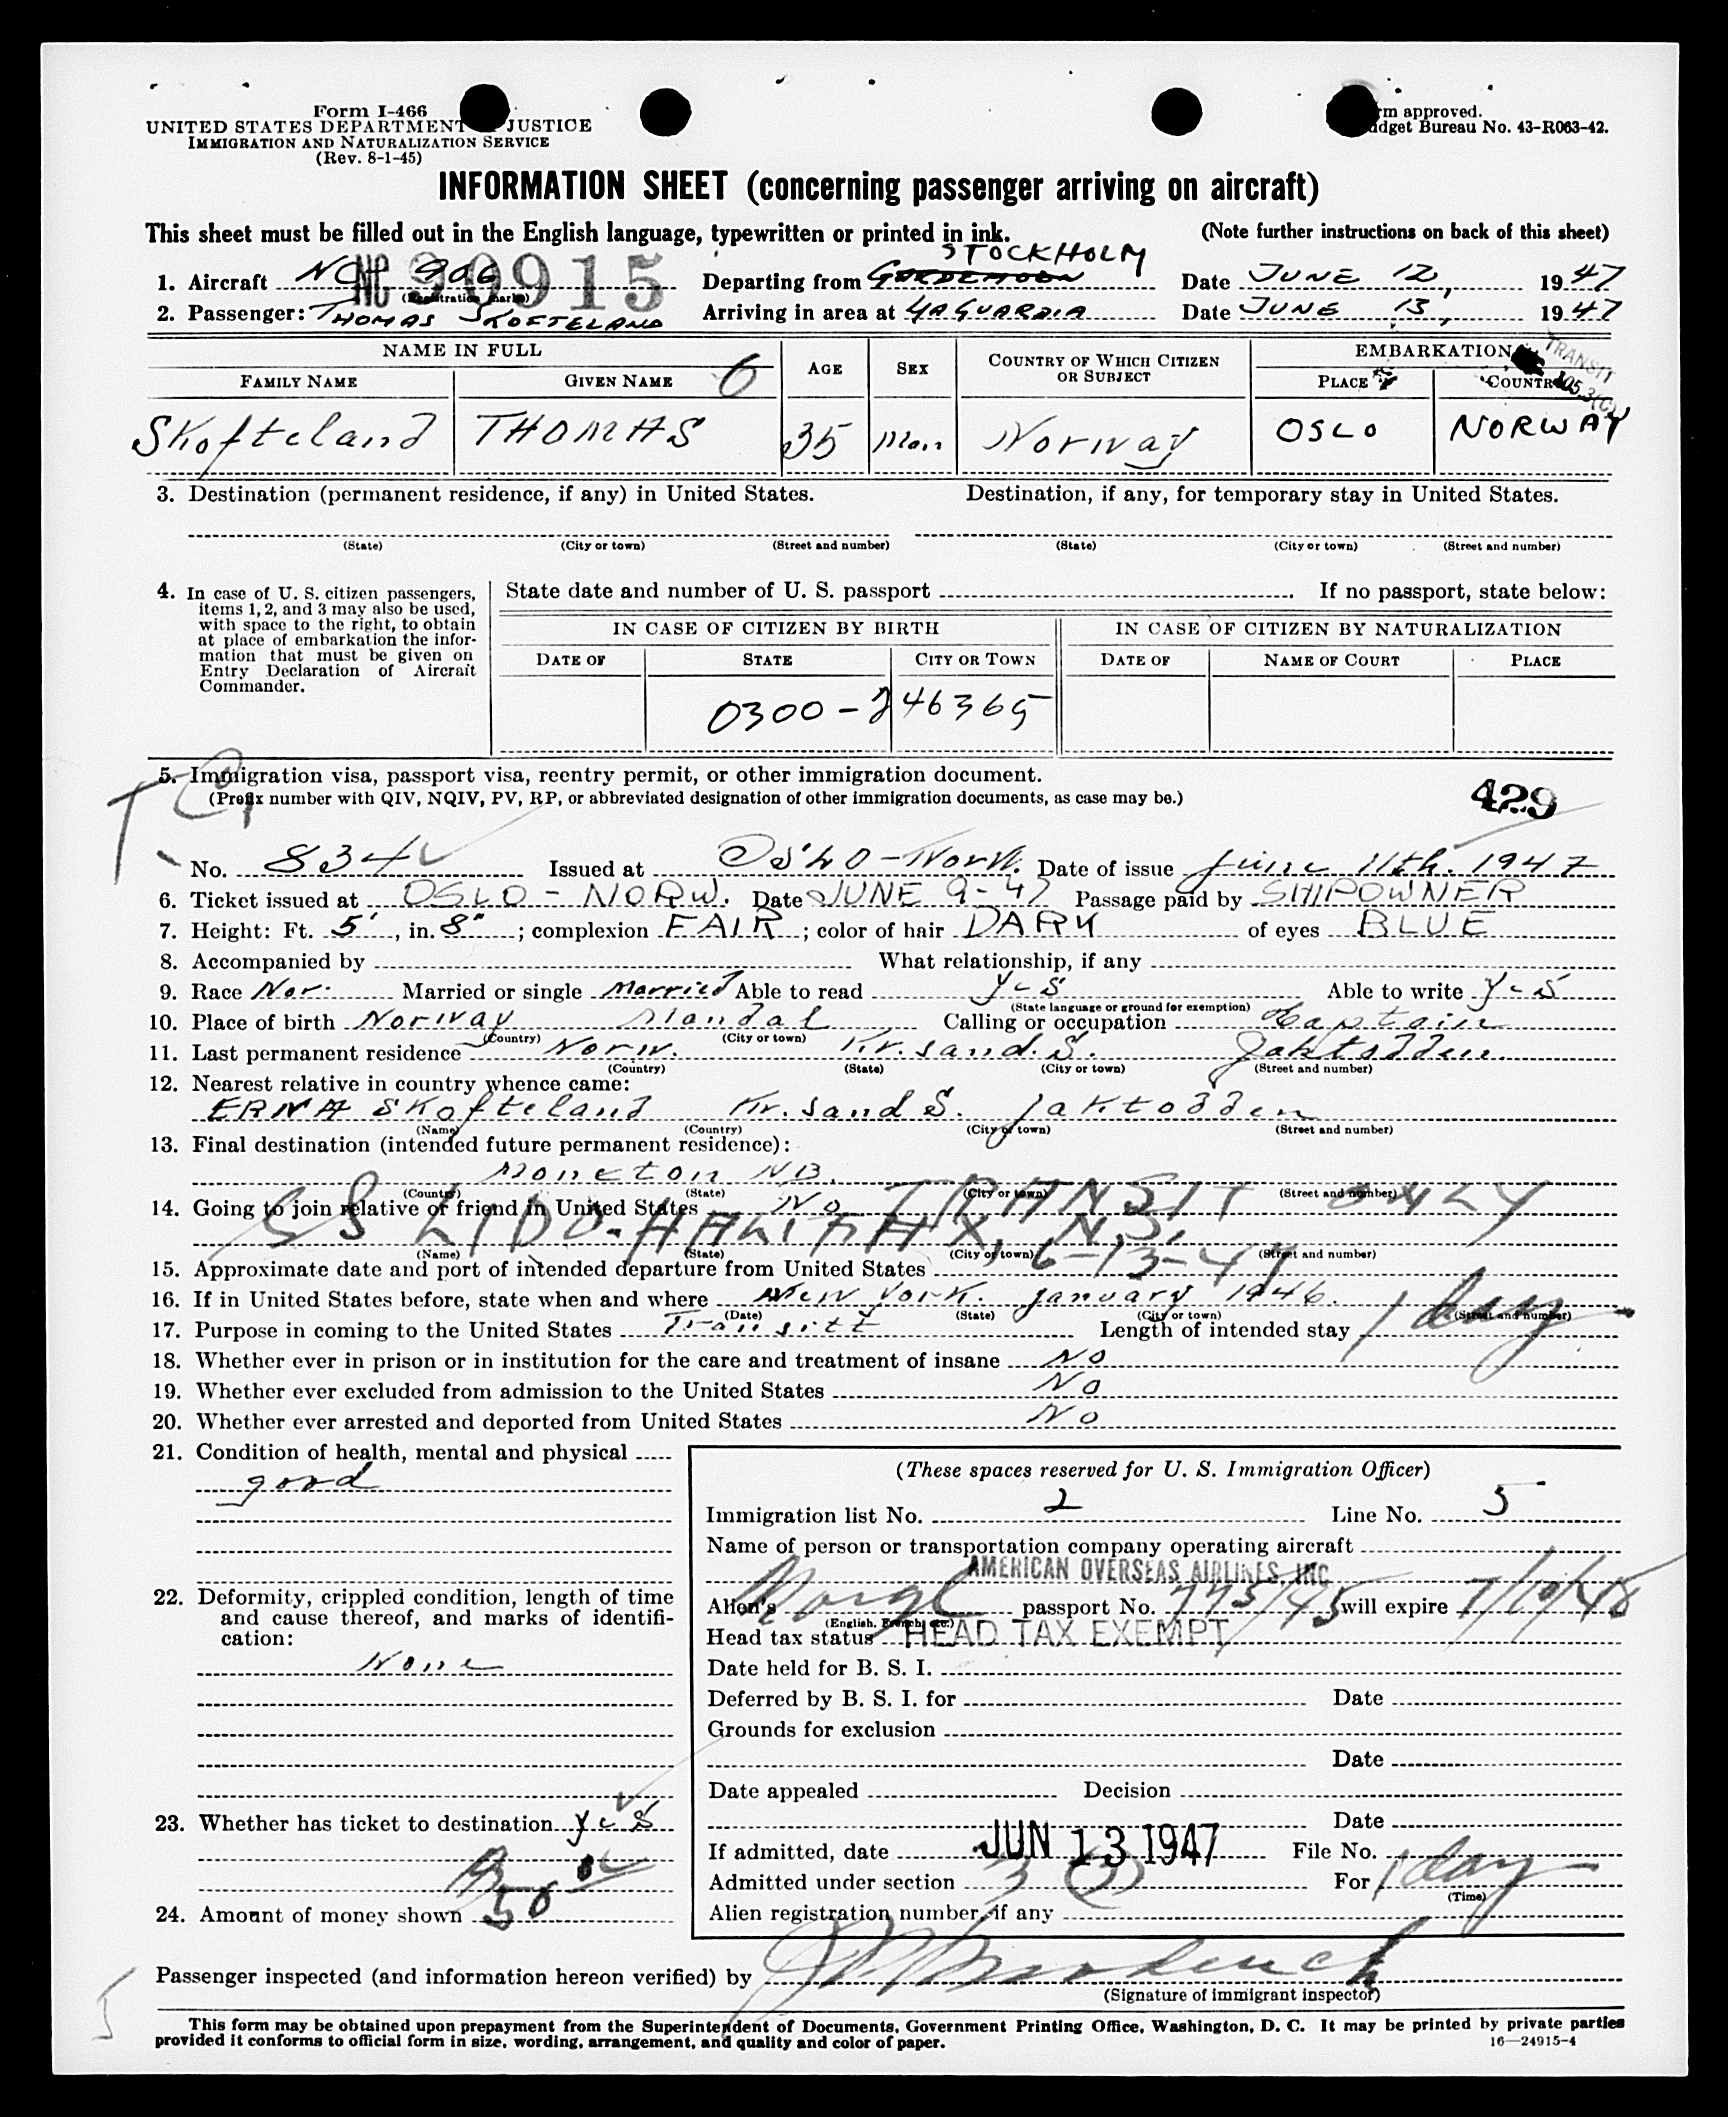 Form I-466
UNITED STATES DEPARTMENT JUSTICE
IMMIGRATION AND NATURALIZATION SERVICE
(Rev. 8-1-45)
m approved.
dget Bureau No. 43-R063-42.
INFORMATION SHEET (concerning passenger arriving on aircraft)
This sheet must be filled out in the English language, typewritten or printed in ink. (Note further instructions on back of this sheet)
STOCKHOLM
1. Aircraft NC 90915 Departing from Date JUNE 12, 1947
(Registration marks)
2. Passenger: THOMAS SKOFTELAND Arriving in area at LAGUARDIA Date JUNE 13, 1947
TRANSIT
NAME IN FULL AGE SEX COUNTRY OF WHICH CITIZEN OR SUBJECT EMBARKATION
FAMILY NAME GIVEN NAME 6 PLACE COUNTRY
Skofteland THOMAS 35 Man Norway OSLO NORWAY
3. Destination (permanent residence, if any) in United States. Destination, if any, for temporary stay in United States.
(State) (City or town) (Street and number) (State) (City or town) (Street and number)
4. In case of U. S. citizen passengers, items 1, 2, and 3 may also be used, with space to the right, to obtain at place of embarkation the information that must be given on Entry Declaration of Aircraft Commander.
State date and number of U. S. passport If no passport, state below:
IN CASE OF CITIZEN BY BIRTH IN CASE OF CITIZEN BY NATURALIZATION
DATE OF STATE CITY OR TOWN DATE OF NAME OF COURT PLACE
0300-246365
5. Immigration visa, passport visa, reentry permit, or other immigration document.
(Prefix number with QIV, NQIV, PV, RP, or abbreviated designation of other immigration documents, as case may be.)
429
No. 834 Issued at Oslo-Norw. Date of issue June 11th. 1947
6. Ticket issued at OSLO - NORW. Date JUNE 9-47 Passage paid by SHIPOWNER
7. Height: Ft. 5', in. 8"; complexion FAIR; color of hair DARK of eyes BLUE
8. Accompanied by What relationship, if any
9. Race Nor. Married or single Married Able to read Yes Able to write Yes
(State language or ground for exemption)
10. Place of birth Norway Mandal Calling or occupation Captain
(Country) (City or town)
11. Last permanent residence Norw. Kr.sand.S. Jaktodden
(Country) (State) (City or town) (Street and number)
12. Nearest relative in country whence came:
ERNA Skofteland Kr.sand S. Jaktodden
(Name) (Country) (City or town) (Street and number)
13. Final destination (intended future permanent residence):
Moncton NB.
(Country) (State) (City or town) (Street and number)
TRANSIT ONLY
14. Going to join relative or friend in United States No
SS LIDO-HALIFAX, N.S.
(Name) (State) (City or town) (Street and number)
15. Approximate date and port of intended departure from United States 6-13-47
16. If in United States before, state when and where New York. January 1946.
(Date) (State) (City or town) (Street and number)
17. Purpose in coming to the United States Transitt Length of intended stay 1 day
18. Whether ever in prison or in institution for the care and treatment of insane No
19. Whether ever excluded from admission to the United States No
20. Whether ever arrested and deported from United States No
21. Condition of health, mental and physical
good
22. Deformity, crippled condition, length of time and cause thereof, and marks of identification:
None
23. Whether has ticket to destination Yes
24. Amount of money shown 50
(These spaces reserved for U. S. Immigration Officer)
Immigration list No. 2 Line No. 5
Name of person or transportation company operating aircraft
AMERICAN OVERSEAS AIRLINES, INC
Alien's passport No. 775/45 will expire 7/10/48
(English, French, etc.)
Head tax status HEAD TAX EXEMPT
Date held for B. S. I.
Deferred by B. S. I. for Date
Grounds for exclusion
Date
Date appealed Decision
Date
If admitted, date JUN 13 1947 File No.
Admitted under section 3 (3) For 1 day
(Time)
Alien registration number, if any
Passenger inspected (and information hereon verified) by
(Signature of immigrant inspector)
This form may be obtained upon prepayment from the Superintendent of Documents, Government Printing Office, Washington, D. C. It may be printed by private parties
provided it conforms to official form in size, wording, arrangement, and quality and color of paper. 16—24915-4